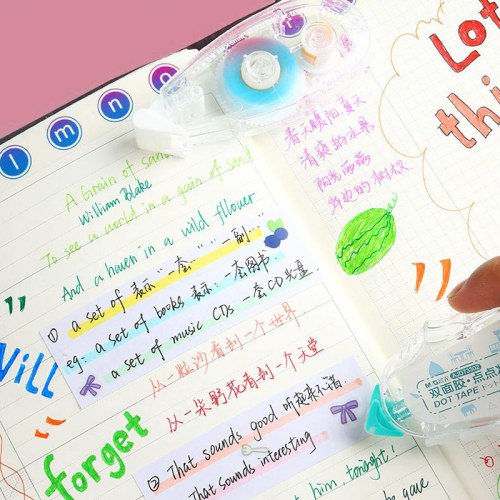 l m n o
A Grain of sand
William Blake
To see a world in a grain of sand
And a haven in a wild fllower
① a set of 表示 "一套" "一副"…
eg: a set of books 表示: 一套图书
a set of music CDs 一套CD光盘.
从一粒沙看到一个世界
从一朵野花看到一个天堂
② That sounds good 听起来不错.
That sounds interesting
him, tonight!
gave
Will
forget
春天
清爽的水果
的树叔
Lot
thin
M&G 晨光
双面胶·点点
DOT TAPE